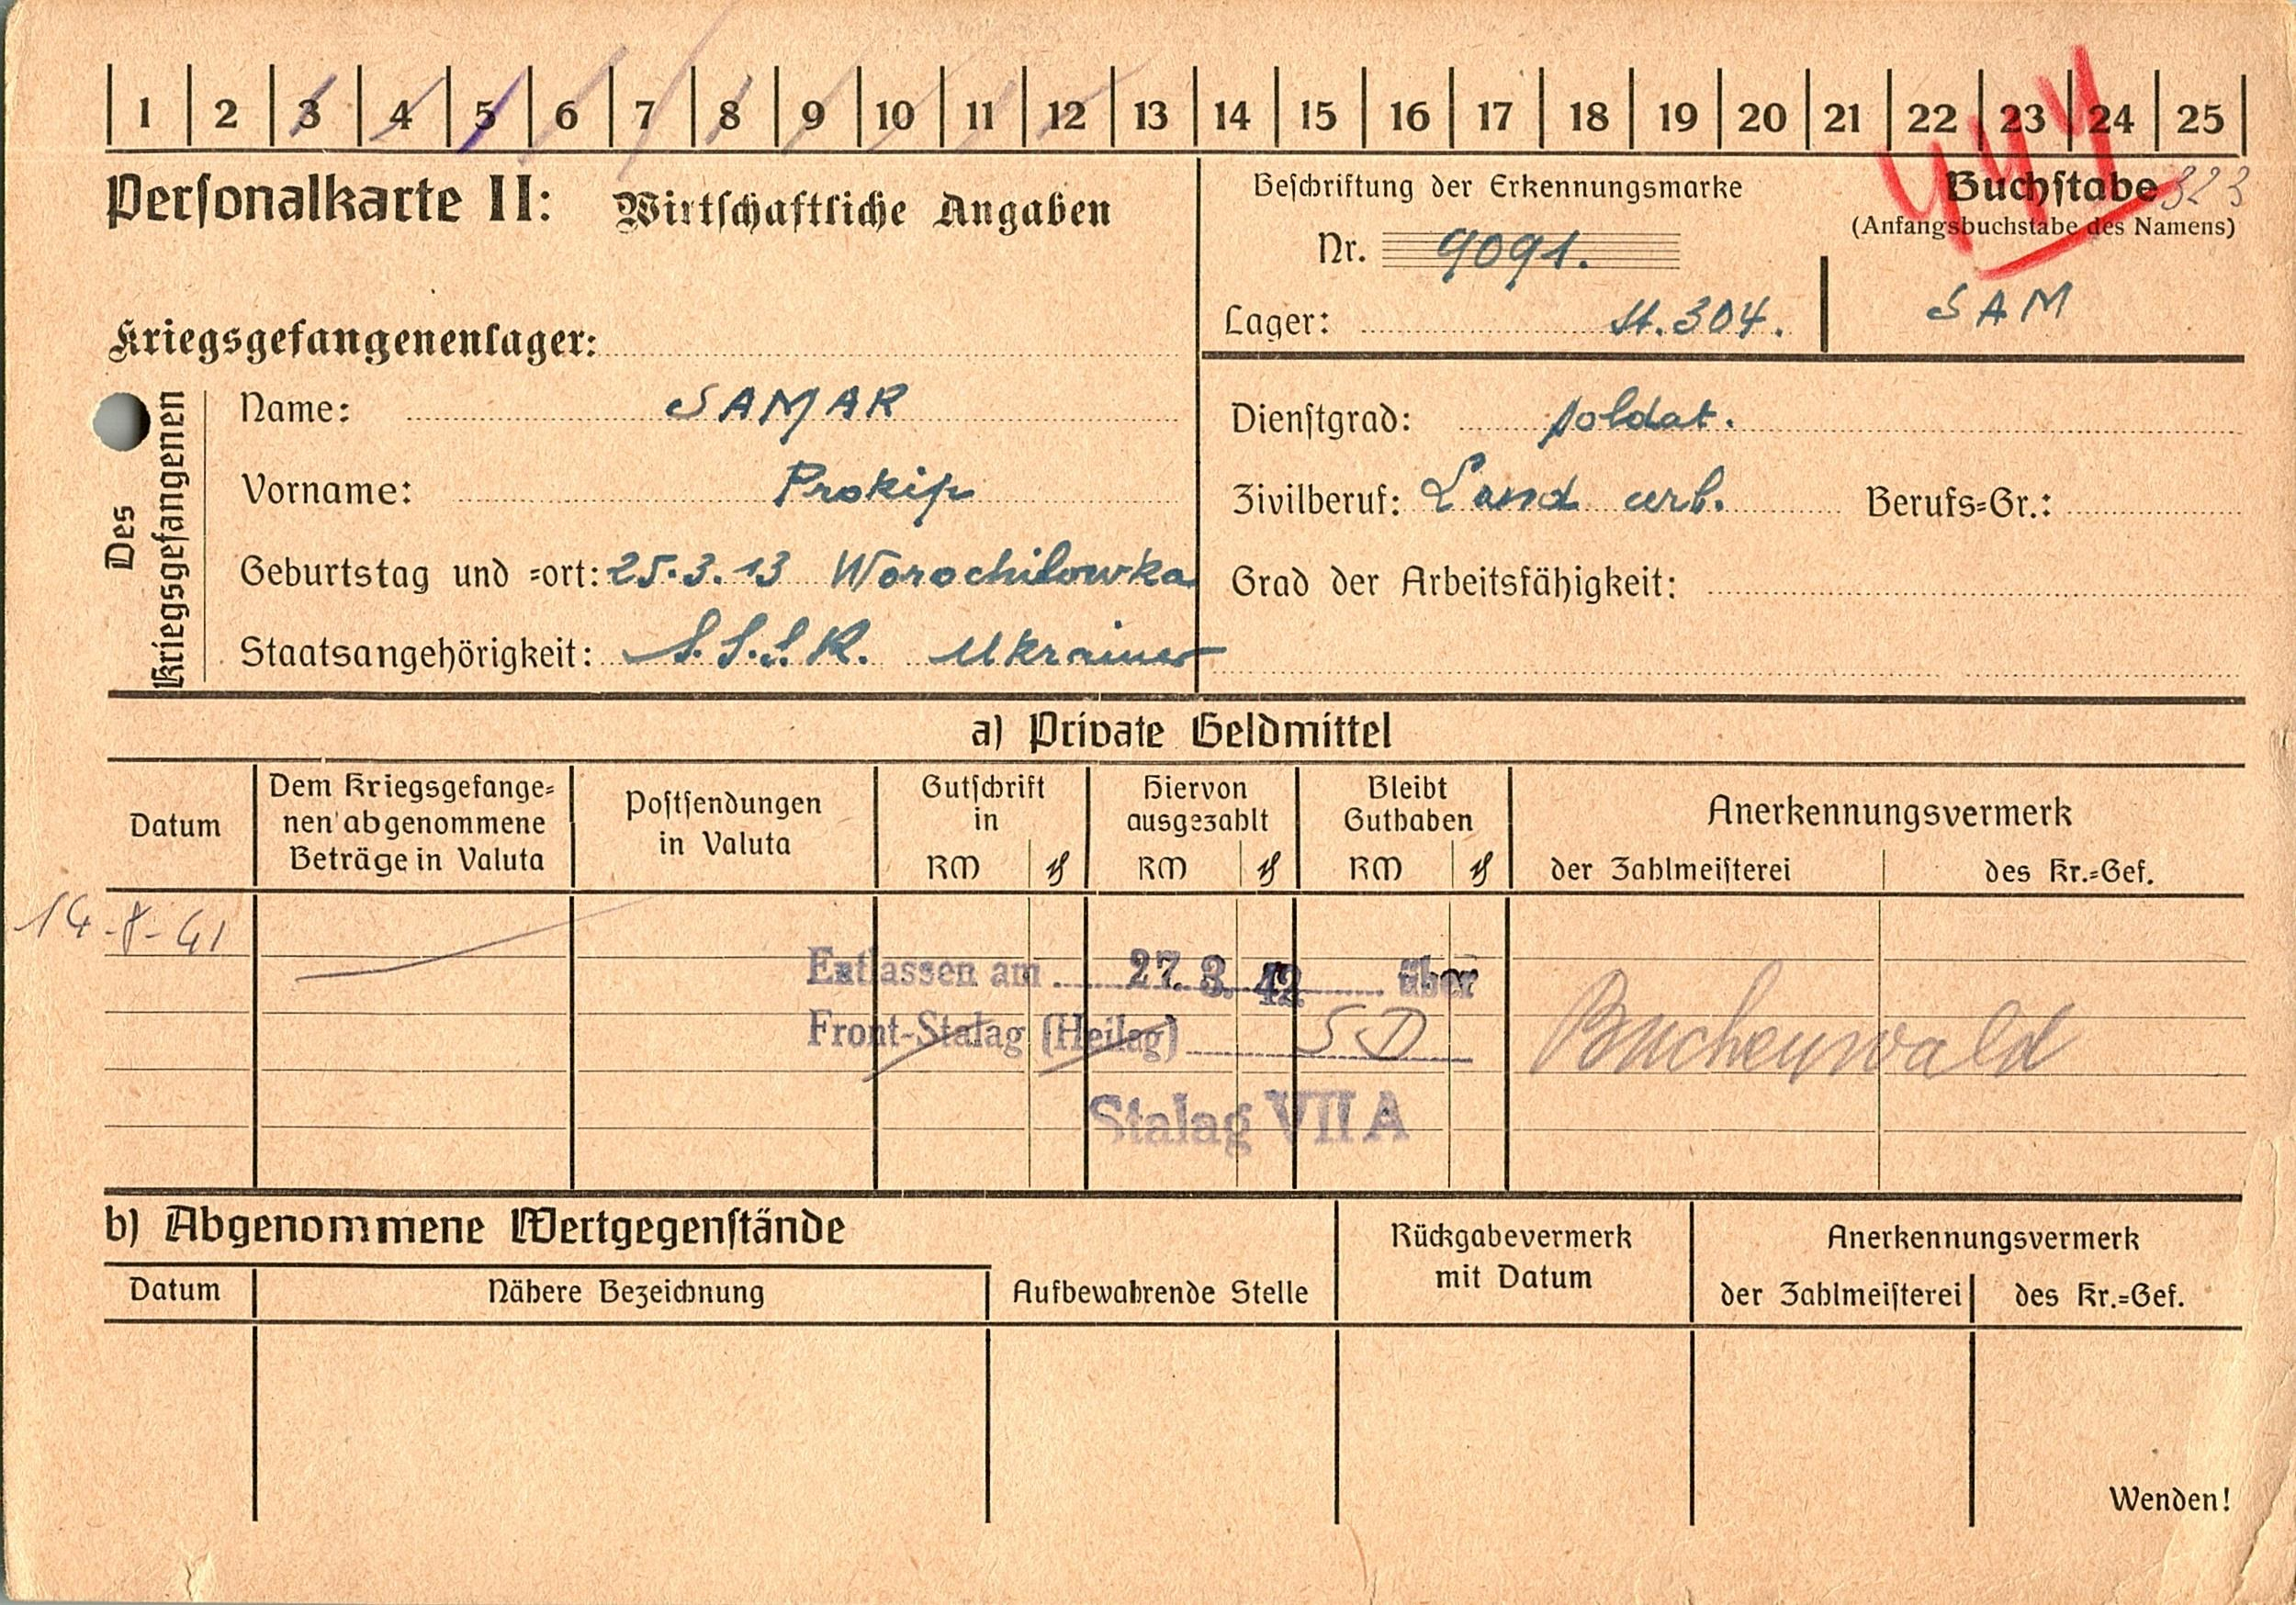 1 2 3 4 5 6 7 8 9 10 11 12 13 14 15 16 17 18 19 20 21 22 23 24 25
Personalkarte II: Wirtschaftliche Angaben
Beschriftung der Erkennungsmarke
Nr. 9091.
Lager: St. 304.
Buchstabe 323
(Anfangsbuchstabe des Namens)
SAM
Kriegsgefangenenlager:
Des Kriegsgefangenen
Name: SAMAR
Vorname: Prokip
Geburtstag und =ort: 25.3.13 Worochilowka
Staatsangehörigkeit: S.S.S.R. Ukrainer
Dienstgrad: soldat.
Zivilberuf: Land arb. Berufs=Gr.:
Grad der Arbeitsfähigkeit:
a) Private Geldmittel
Datum
Dem Kriegsgefange=
nen abgenommene
Beträge in Valuta
Postsendungen
in Valuta
Gutschrift
in
RM ₰
Hiervon
ausgezahlt
RM ₰
Bleibt
Guthaben
RM ₰
Anerkennungsvermerk
der Zahlmeisterei des Kr.=Gef.
14-8-41
Entlassen am 27. 3. 42 über
Front-Stalag (Heilag) SD
Buchenwald
Stalag VII A
b) Abgenommene Wertgegenstände
Datum
Nähere Bezeichnung
Aufbewahrende Stelle
Rückgabevermerk
mit Datum
Anerkennungsvermerk
der Zahlmeisterei des Kr.=Gef.
Wenden!